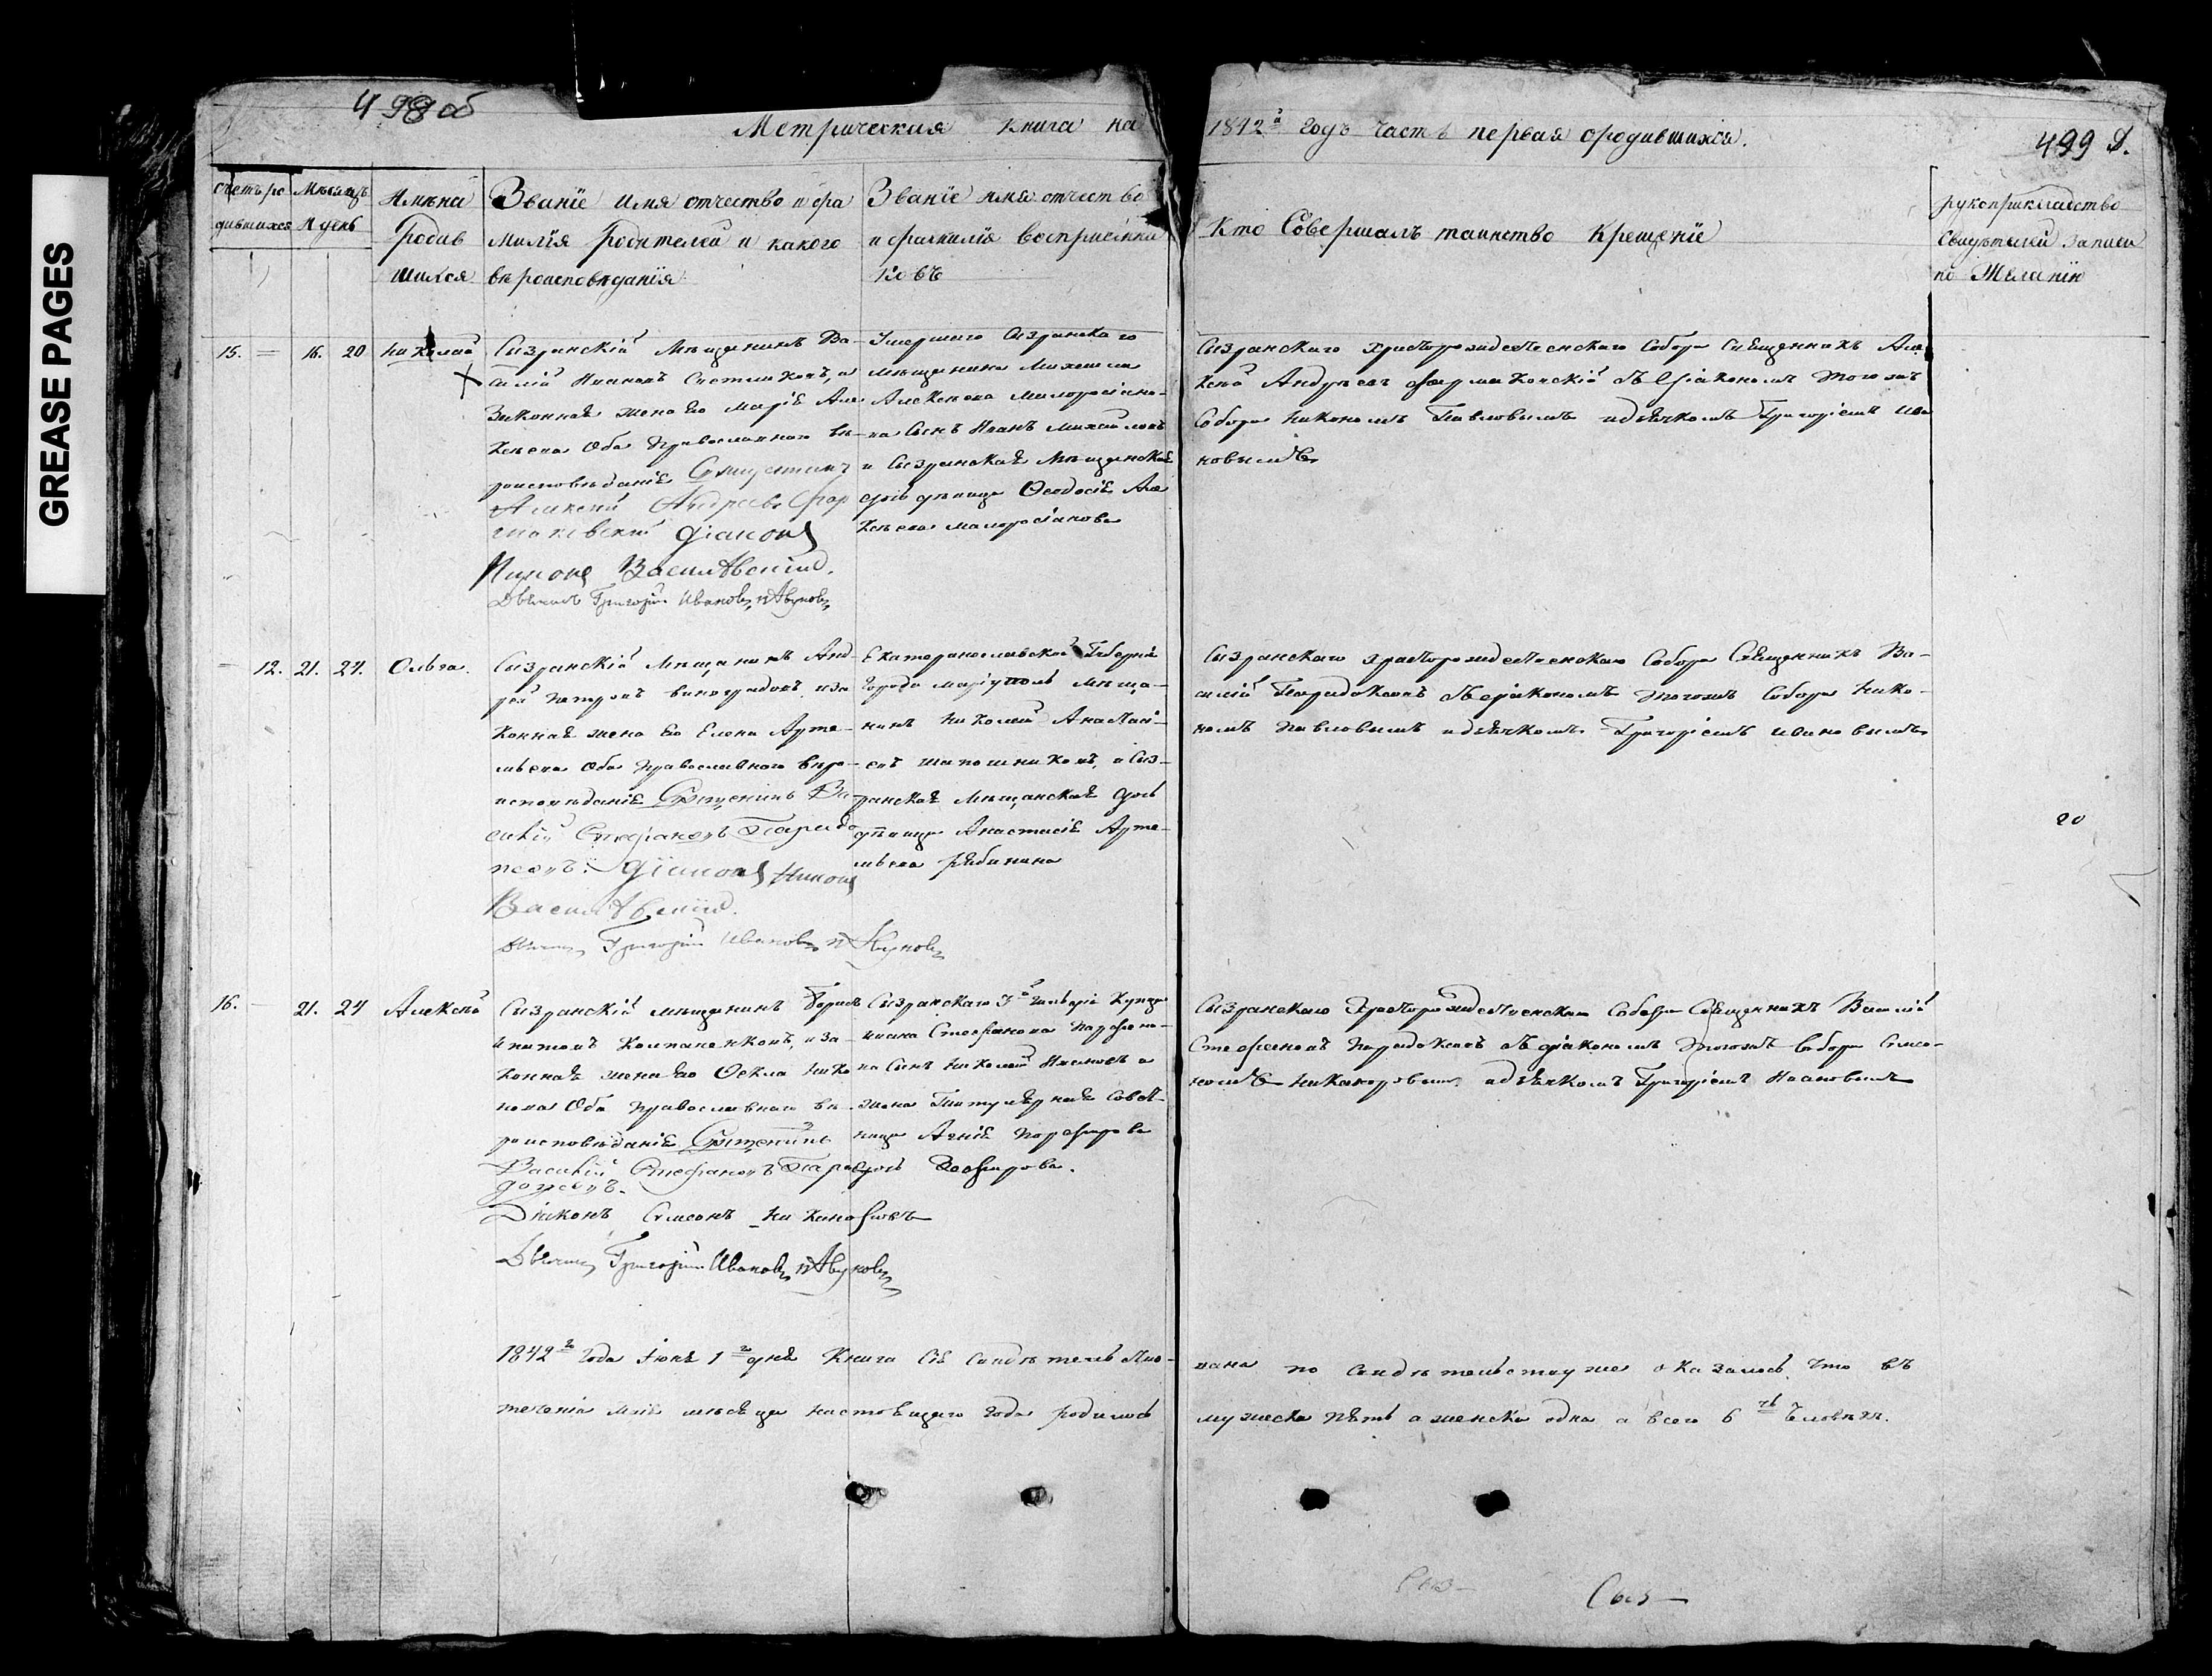 GREASE PAGES
498 об
Метрическия книга на 1842й годъ часть первая ородившихся.
499 Д.
Счетъ ро
дившихся
Мѣсяцъ
И день
Имѣна
Родив
шихся
Званїе имя отчество и фа
милїя Родителей и какого
вѣроисповѣданїя
Званїе имя отчество
и фамилїя восприемни
ковъ
Кто Совершалъ таинство Крещенїе
рукоприкладство
Свидѣтелей записи
по Желанїю
15. 16. 20 Николай
Сызранскїй Мѣщанинъ Ва-
силїй Ивановъ Счетчиковъ, и
Законная жена Его Марїя Але
ксѣева Оба Православнаго вѣ-
роисповѣданїя Священникъ
Алексей Андреевъ Фар
маковский Дїаконъ
Никонъ Василевскїй.
Дьячекъ Григорїй Ивановъ
Умершаго Сызранскаго
мѣщанина Михаила
Алексѣева Малоросїяно-
ва Сынъ Иванъ Михайловъ
и Сызранская Мѣщанская
дочь дѣвица Ѳеодосїя Але
ксѣева малоросїянова
Сызранскаго Христорождественскаго Собора Священникъ Але
ксѣй Андрѣевъ Фармаковскїй съ Дїакономъ Тогожъ
Собора Никономъ Павловымъ идьячкомъ Григорїемъ Ива
новымъ
12. 21. 24. Ольга.
Сызранскїй Мѣщанинъ Анд-
рей Петровъ виноградовъ, иза
Конная жена Его Елена Арте-
мьева Оба Православнаго вѣро-
исповѣданїя Священникъ Ва-
силїй Стефановъ Парадо
ксовъ. Дїаконъ Никонъ
Василевскїй.
Дьячекъ Григорїй Ивановъ
Екатеринославской Губернїи
Города Марїуполь Мѣща-
нинъ Николай Анастасї-
евъ Шапошниковъ, и Сыз-
ранская Мѣщанская дочь
дѣвица Анастасїя Арте-
мьева рябинина
Сызранскаго Христорождественскаго Собора Священникъ Ва-
силїй Парадоксовъ съ дїакономъ Тогожъ Собора Нико-
номъ Павловымъ идьячкомъ Григорїемъ ивановымъ
20
16. 21. 24 Алексѣй
Сызранскїй мѣщанинъ Борисъ
иза-
Конная жена Его Ѳекла Нико
нова Оба Православнаго вѣ-
роисповѣданїя Священникъ
Василїй Стефановъ Пара
доксовъ.
Дїаконъ Симеонъ Никаноровъ
Дьячекъ Григорїй Ивановъ
Сызранскаго 3й Гильдїи Купца
Ивана Стефанова
на Сынъ Николай Ивановъ и
жена Титулярная Совѣт-
ница Агнїя Порфирова
дочь
Сызранскаго Христорождественскаго Собора Священникъ Василїй
Стефановъ Парадоксовъ съ дїакономъ Тогожъ Собора Симео-
номъ Никаноровымъ идьячкомъ Григорїемъ Ивановымъ
1842го Года Июня 1го дня Книга Сїя Свидѣтельство- вана по Свидѣтельству же оказалось что въ
теченїи Маїя мѣсяца настоящаго Года родилось мужеска пять а женска одна а всего 6ть Человѣкъ.
Сыз-